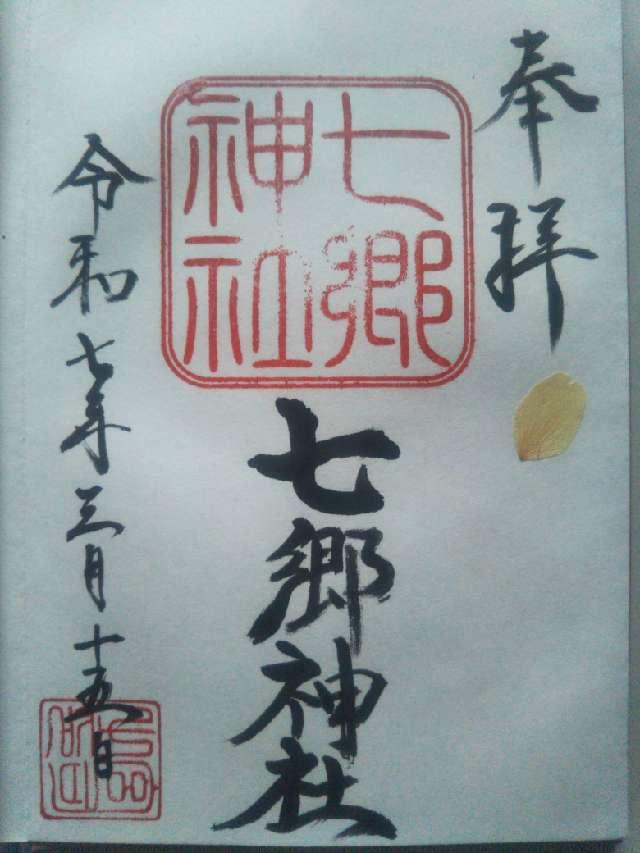 奉拝
七郷
神社
七郷神社
令和七年三月十五日